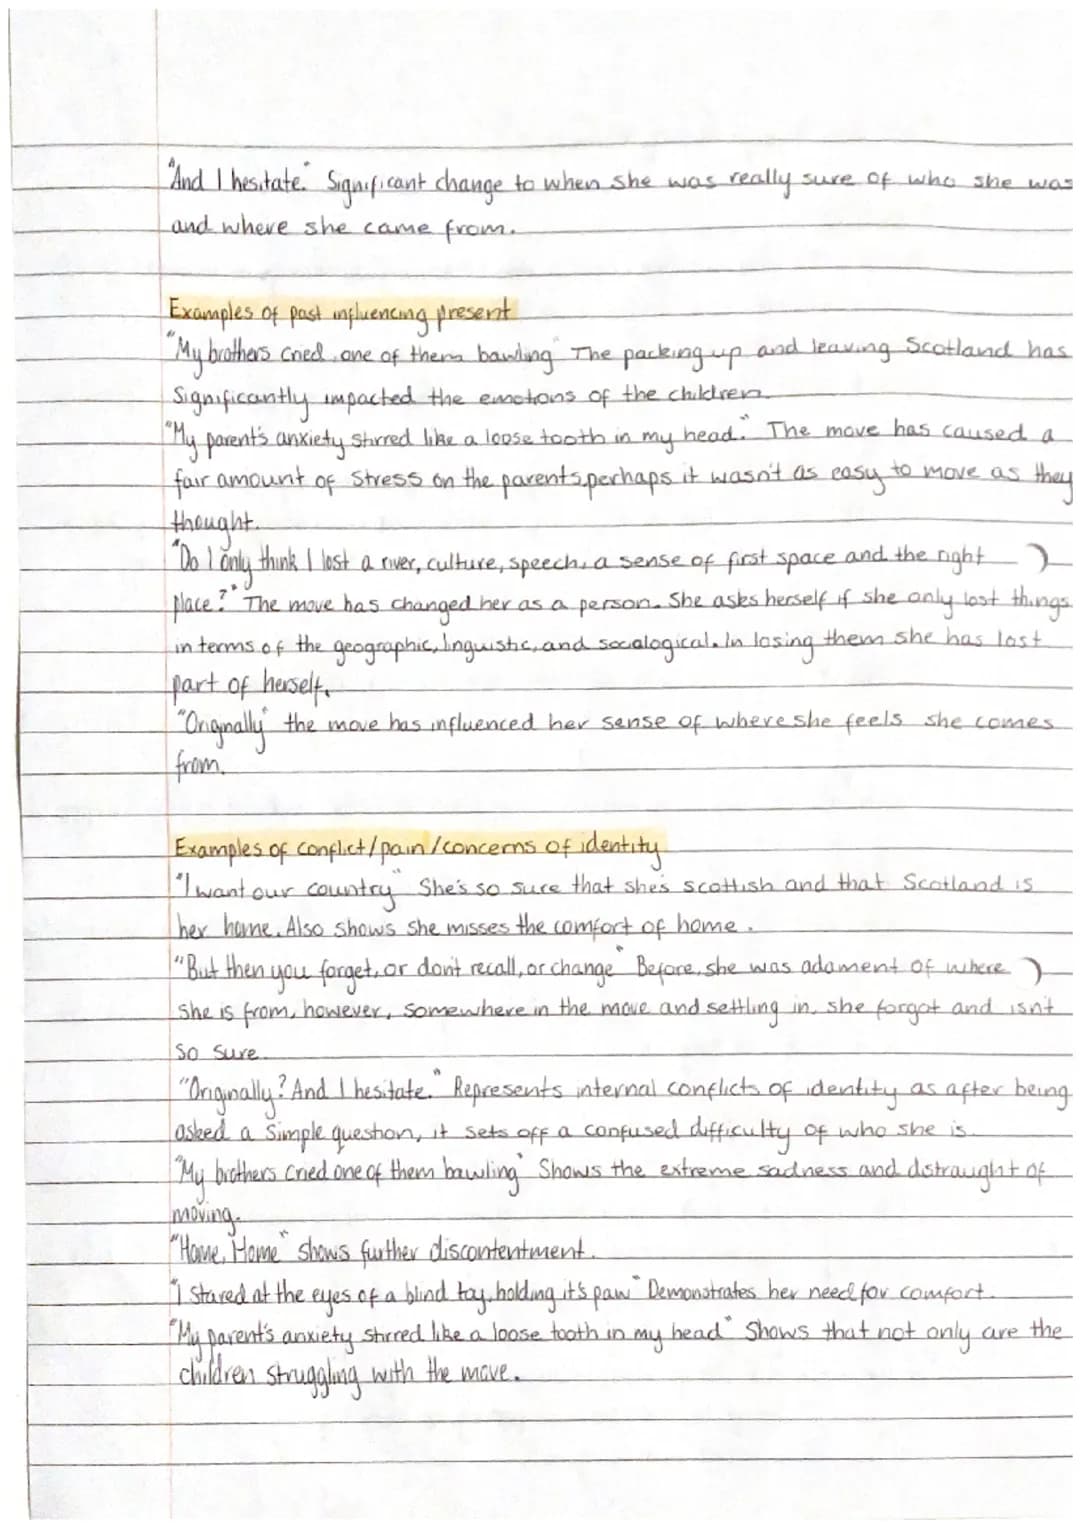 "And I hesitate." Significant change to when she was really sure of who she was
and where she came from.
Examples of past influencing present
"My brothers cried, one of them bawling" The packing up and leaving Scotland has
Significantly impacted the emotions of the children.
"My parent's anxiety stirred like a loose tooth in my head." The move has caused a
fair amount of stress on the parents, perhaps it wasn't as easy to move as they
thought.
"Do I only think I lost a river, culture, speech, a sense of first space and the right
place?" The move has changed her as a person. She asks herself if she only lost things
in terms of the geographic, linguistic, and sociological. In losing them she has lost
part of herself.
"Originally" the move has influenced her sense of where she feels she comes
from.
Examples of conflict/pain/concerns of identity
"I want our country" She's so sure that she's scottish and that Scotland is
her home. Also shows she misses the comfort of home.
"But then you forget, or don't recall, or change" Before, she was adament of where
she is from, however, somewhere in the move and settling in, she forgot and isn't
so sure.
"Originally? And I hesitate." Represents internal conflicts of identity as after being
asked a simple question, it sets off a confused difficulty of who she is.
"My brothers cried one of them bawling" Shows the extreme sadness and distraught of
moving.
"Home, Home" shows further discontentment.
"I stared at the eyes of a blind toy, holding it's paw" Demonstrates her need for comfort.
"My parent's anxiety stirred like a loose tooth in my head" Shows that not only are the
children struggling with the move.